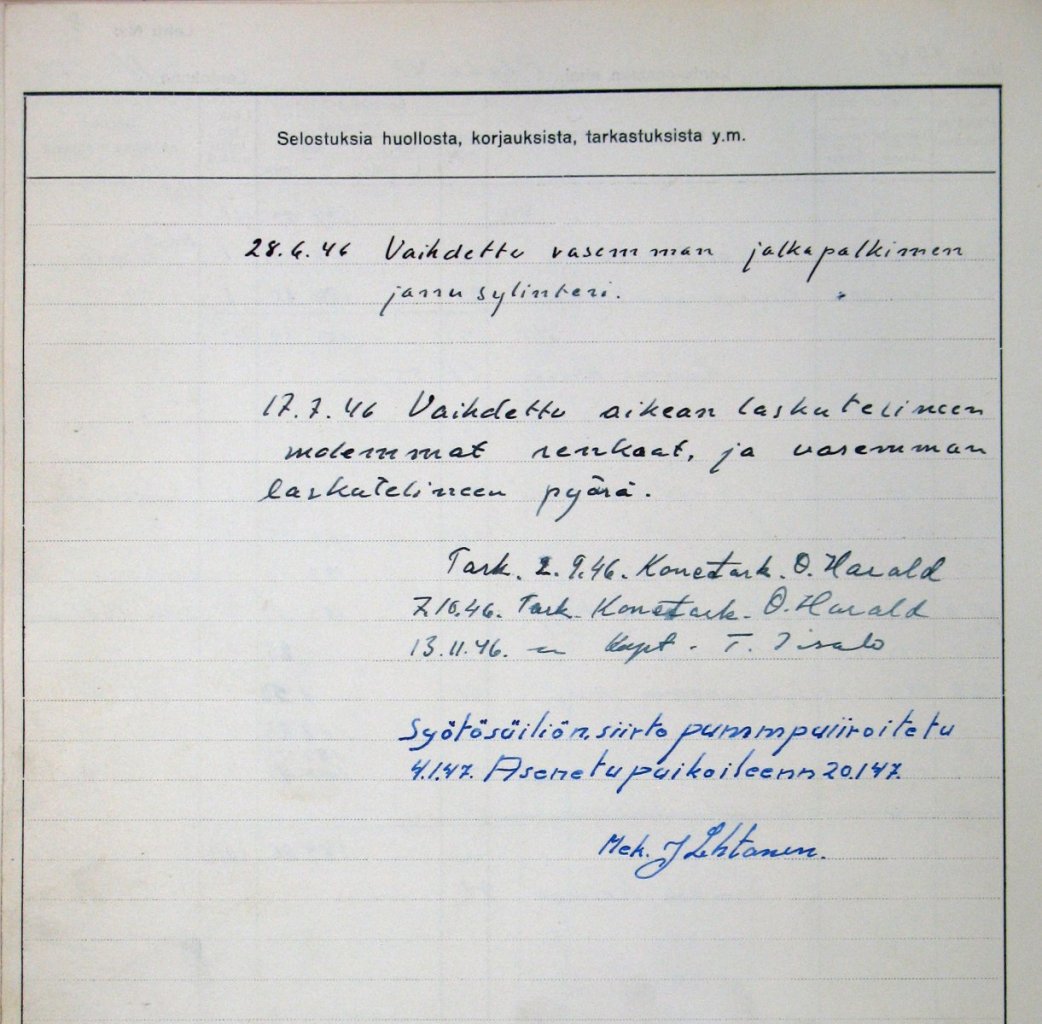 Selostuksia huollosta, korjauksista, tarkastuksista y.m.
28.6.46 Vaihdettu vasemman jalkapalkimen
jarrusylinteri.
17.7.46 Vaihdettu oikean laskutelineen
molemmat renkaat, ja vasemman
laskutelineen pyörä.
Tark. 2.9.46. Konetark. O. Harald
7.10.46. Tark. Konetark. O. Harald
13.11.46. —"— Kapt. T. Iisalo
Syötösäiliön siirto pummpu iiroitetu
4.1.47. Asenetu paikoileenn 20.1.47.
Mek. J Lehtonen.